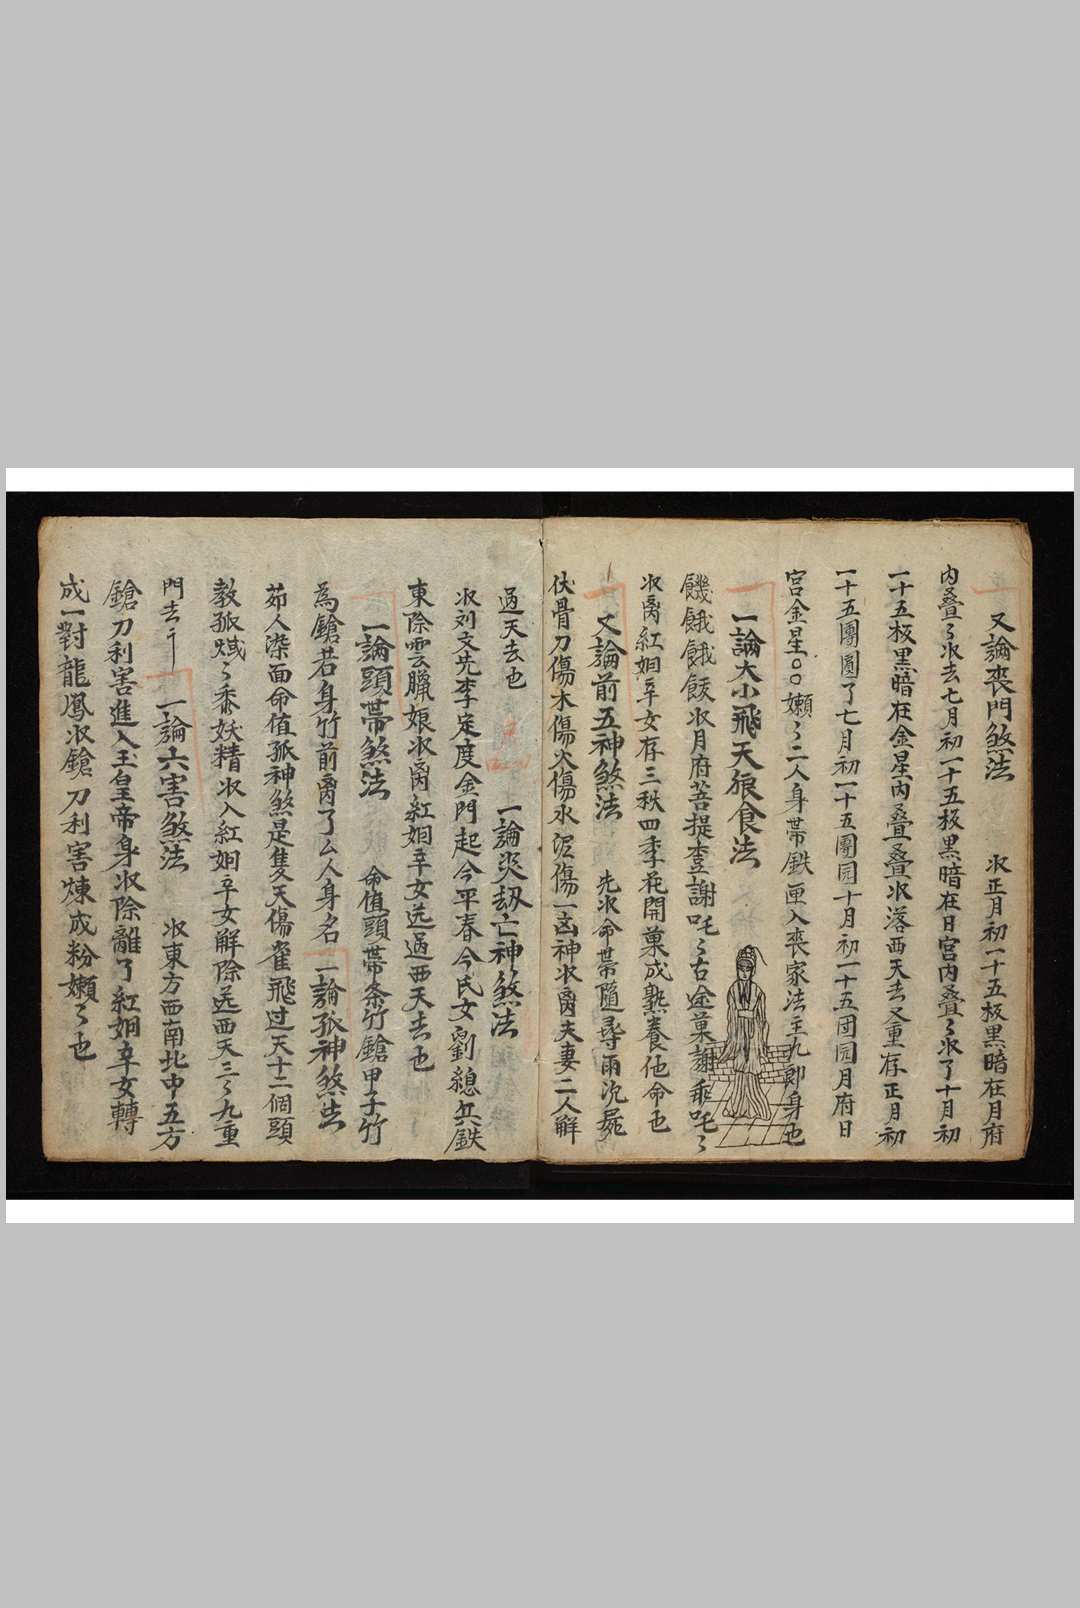 又論喪門煞法　　氷正月初一十五极黒暗在月府
内叠〻氷去七月初一十五极黒暗在日宫内叠〻氷了十月初
一十五极黒暗在金星内叠叠氷落西天去又重存正月初
一十五團圓了七月初一十五團园十月初一十五团园月府日
宫金星〇〇嬾〻二人身帶鉄匣入喪家法主九郎身也
一論大小飛天狼食法
饑餓餓餒氷月府菩提李謝吒〻古途菓謝乖吒〻
氷离紅姻辛女存三秋四季花開菓成熟養他命也
又論前五神煞法　　先氷命帶隨尋雨沉屍
伏骨刀傷木傷火傷水泥傷一凶神氷离夫妻二人解
過天去也　　一論災刼亡神煞法
氷刘文先李定度金門起今平春今氏女劉總兵鉄
東除雲臘娘氷离紅姻辛女送過西天去也
一論頭帶煞法　　命值頭帶条竹鎗甲子竹
為鎗若身竹前离了厶人身名　一論孤神煞法
茆人染面命值孤神煞是隻天傷雀飛过天十二個頭
教孤㷙〻黍妖精氷入紅姻辛女解除送西天三〻九重
門去亍　一論六害煞法　　氷東方西南北中五方
鎗刀利害進入玉皇帝身氷除離了紅姻辛女轉
成一對龍鳳氷鎗刀利害煉成粉嬾〻也